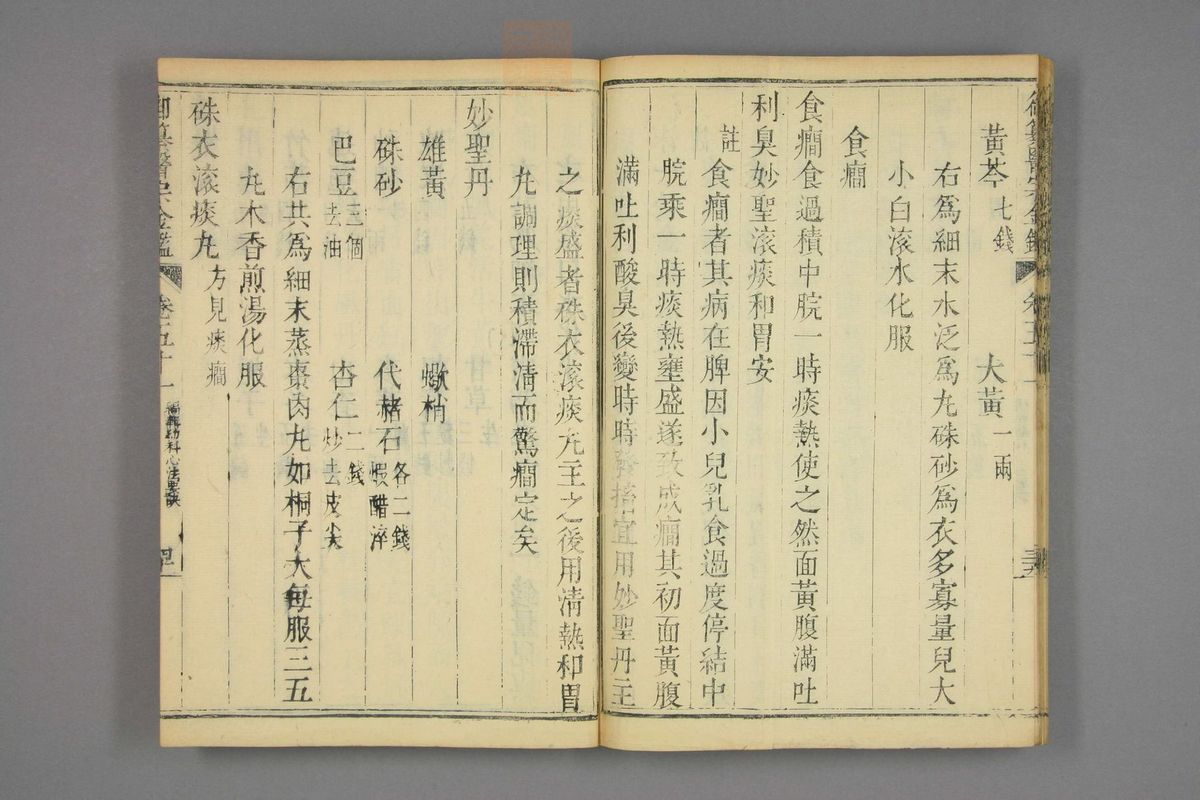 黃芩七錢　大黃一兩
右為細末水泛為丸硃砂為衣多寡量兒大
小白滾水化服
食癎
食癎食過積中脘一時痰熱使之然面黃腹滿吐
利臭妙聖滾痰和胃安
註食癎者其病在脾因小兒乳食過度停結中
脘乘一時痰熱壅盛遂致成癎其初面黃腹
滿吐利酸臭後變時時發搐宜用妙聖丹主
之痰盛者硃衣滾痰丸主之後用淸熱和胃
丸調理則積滯淸而驚癎定矣
妙聖丹
雄黃　蠍梢
硃砂　代赭石各二錢煅醋淬
巴豆三個去油　杏仁二錢炒去皮尖
右共為細末蒸棗肉丸如桐子大每服三五
丸木香煎湯化服
硃衣滾痰丸方見痰癎
御纂醫宗金鑑　卷五十一　編輯幼科心法要訣